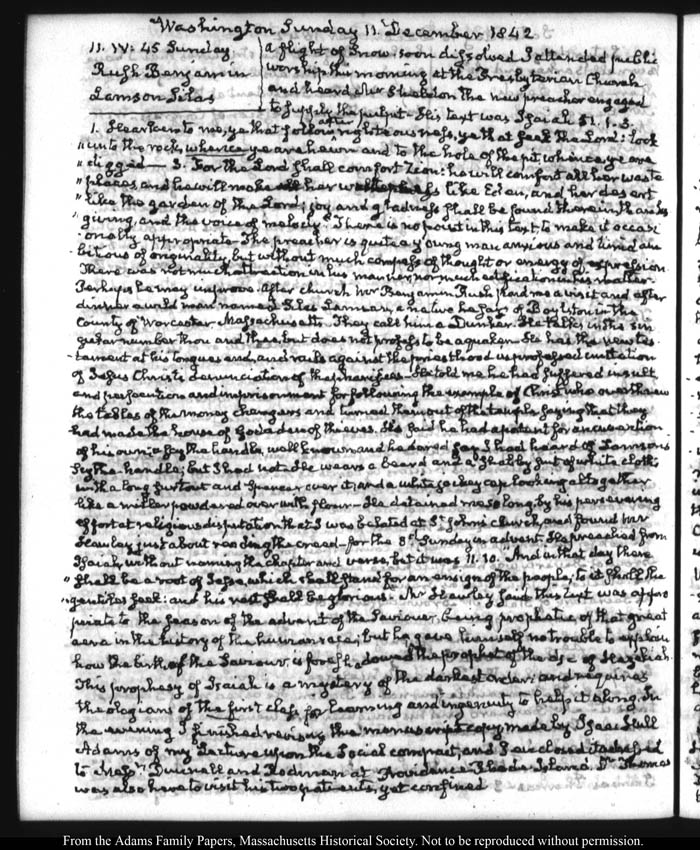 Washington Sunday 11. December 1842
11. IV: 45 Sunday
Rush Benjamin
Lamson Silas
a flight of Snow, soon dissolved I attended public
worship this morning at the Presbyterian Church
and heard Mr Sheldon the new preacher engaged
to supply the pulpit - His text was Isaiah 51. 1. 3.
1. Hearken to me, ye that follow after righteousness, ye that seek the Lord: look
" unto the rock, whence ye are hewn and to the hole of the pit, whence ye are
" digged — 3. For the Lord shall comfort Zion: he will comfort all her waste
" places, and he will make her wilderness like Eden, and her desert
" like the garden of the Lord; joy and gladness shall be found therein, thanks
" giving, and the voice of melody." There is no point in this text to make it occasi
onally appropriate - The preacher is quite a young man anxious and timid am
bitious of originality, but without much compass of thought or energy of expression
There was not much attraction in his manner, nor much edification in his matter.
Perhaps he may improve. After church Mr Benjamin Rush paid me a visit and after
dinner a wild man named Silas Lamson, a native he says of Boylston in the
County of Worcester Massachusetts. They call him a Dunker. He talks in the sin
gular number thou and thee, but does not profess to be a quaker. He has the new tes
tament at his tongue's end, and rails against the priesthood in professed imitation
of Jesus Christ's denunciation of the pharisees - He told me he had suffered insult
and persecution and imprisonment for following the example of Christ who overthrew
the tables of the money changers and turned them out of the temple saying that they
had made the house of God a den of thieves. He said he had a patent for an invention
of his own - a Scythe handle, well known and he dared say I had heard of Lamson's
Scythe handle; but I had not. He wears a beard and a shabby suit of white cloth,
with a long surtout and Spencer over it, and a white jockey cap looking altogether
like a miller powdered over with flour - He detained me so long, by his persevering
effort at religious disputation that I was belated at St. John's church, and found Mr
Hawley just about reading the creed - for the 3d. Sunday in advent. He preached from
Isaiah, without naming the chapter and verse, but it was 11. 10. "And in that day there
" shall be a root of Jesse, which shall stand for an ensign of the people; to it shall the
" gentiles seek: and his rest shall be glorious. Mr Hawley said this text was appro
priate to the season of the advent of the Saviour, being prophetic of that great
aera in the history of the human race; but he gave himself no trouble to explain
how the birth of the Saviour, is foreshadowed the prophet of the age of Hezekiah.
This prophesy of Isaiah is a mystery of the darkest order; and requires
theologians of the first class for learning and ingenuity to help it along. In
the evening I finished revising the manuscript copy made by Isaac Hull
Adams of my Lecture upon the Social compact, and I enclosed it addressed
to Messrs. Burnell and Rodman at Providence Rhode Island. Dr Thomas
was also here to visit his two patients, yet confined